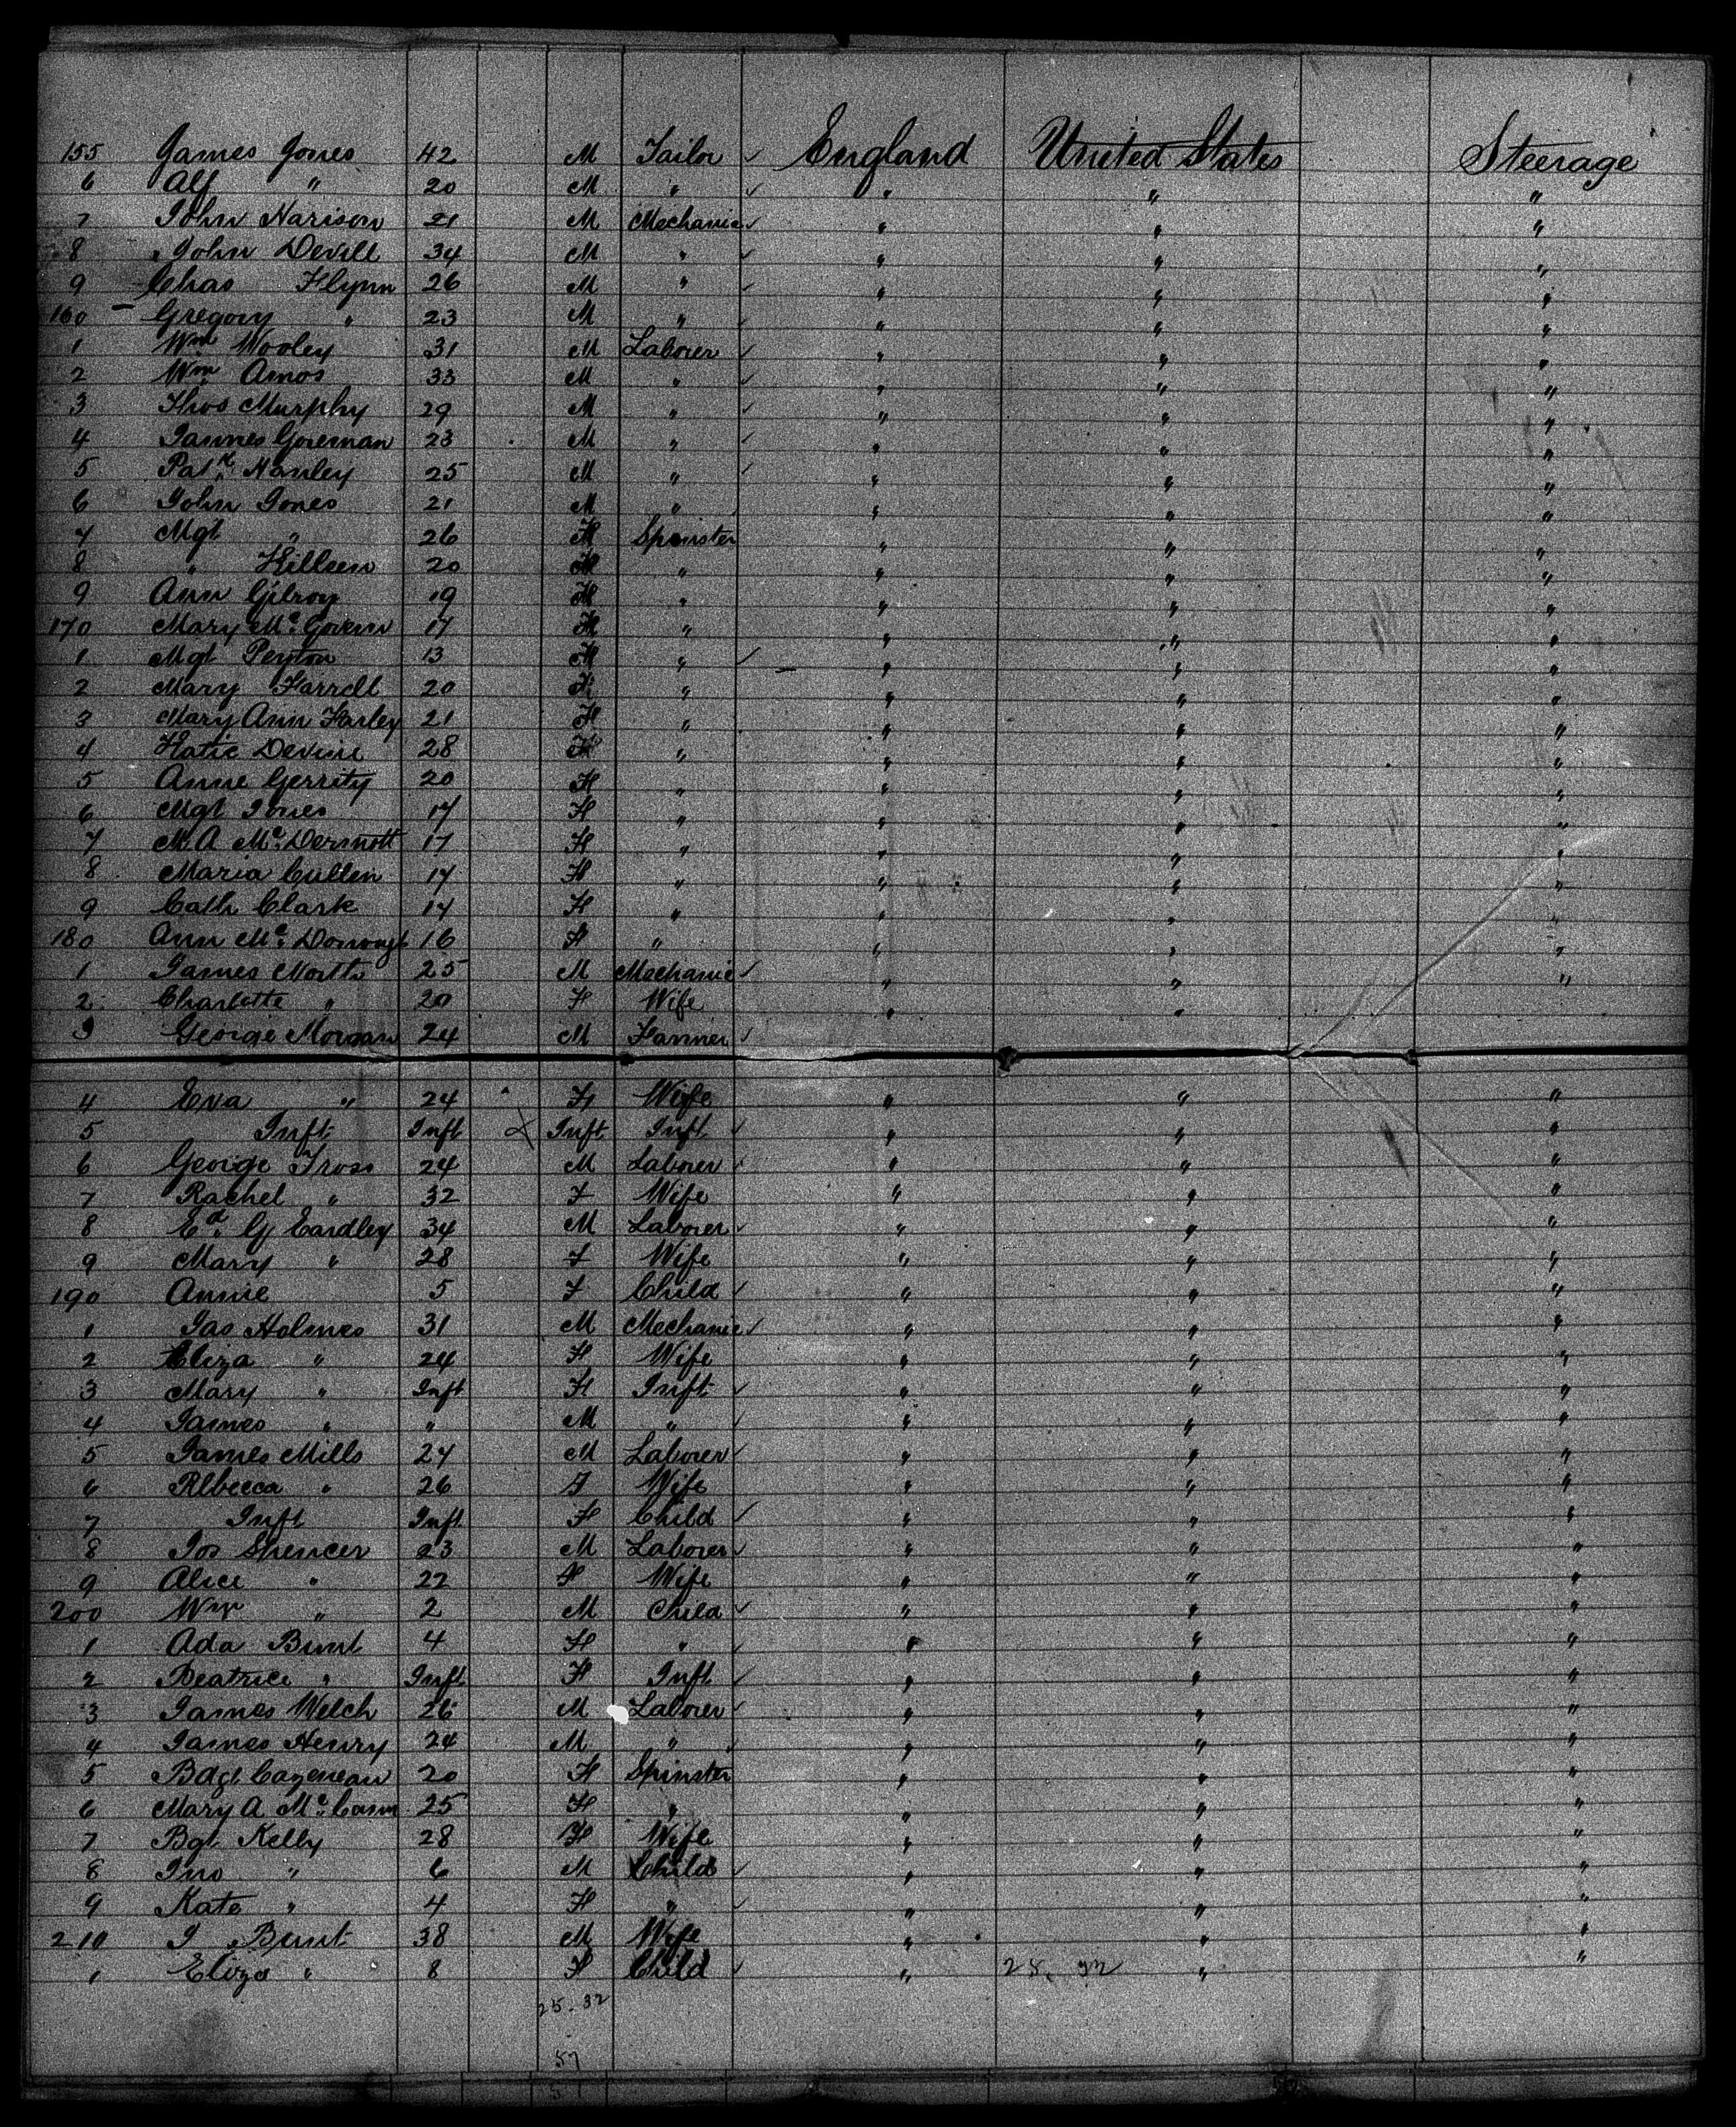 155 James Jones 42 M Tailor ✓ England United States Steerage
6 Alf " 20 M " ✓ " " "
7 John Harison 21 M Mechanic ✓ " " "
8 John Devill 34 M " ✓ " " "
9 Chas Flynn 26 M " ✓ " " "
160 Gregory " 23 M " ✓ " " "
1 Wm Wooley 31 M Laborer ✓ " " "
2 Wm Amos 33 M " ✓ " " "
3 Thos Murphy 29 M " ✓ " " "
4 James Goreman 23 M " ✓ " " "
5 Patk Hanley 25 M " ✓ " " "
6 John Jones 21 M " " " "
7 Mgt " 26 F Spinster " " "
8 " Killeen 20 F " " " "
9 Ann Gilroy 19 F " " " "
170 Mary Mc Govern 17 F " " " "
1 Mgt Peyton 13 F " ✓ " " "
2 Mary Farrell 20 F " " " "
3 Mary Ann Farley 21 F " " " "
4 Katie Devine 28 F " " " "
5 Anne Gerrity 20 F " " " "
6 Mgt Jones 17 F " " " "
7 M.A Mc Dermott 17 F " " " "
8 Maria Cullen 17 F " " " "
9 Cath Clark 17 F " " " "
180 Ann Mc Donough 16 F " " " "
1 James North 25 M Mechanic ✓ " " "
2 Charlotte " 20 F Wife " "
3 George Morgan 24 M Farmer ✓
4 Eva " 24 F Wife " " "
5 Inft Inft Inft Inft ✓ " " "
6 George Fross 24 M Laborer ✓ " " "
7 Rachel " 32 F Wife " " "
8 Ed. G Eardley 34 M Laborer ✓ " " "
9 Mary " 28 F Wife " " "
190 Annie 5 F Child ✓ " " "
1 Jas Holmes 31 M Mechanic ✓ " " "
2 Eliza " 24 F Wife " " "
3 Mary " Inft F Inft ✓ " " "
4 James " " M " ✓ " " "
5 James Mills 27 M Laborer ✓ " " "
6 Rlbecca " 26 F Wife " " "
7 Inft Inft F Child ✓ " " "
8 Jos Spencer 23 M Laborer ✓ " " "
9 Alice " 22 F Wife " " "
200 Wm " 2 M Child ✓ " " "
1 Ada Bunt 4 F " ✓ " " "
2 Beatrice " Inft F Inft ✓ " " "
3 James Welch 26 M Laborer ✓ " " "
4 James Henry 24 M " ✓ " " "
5 Bdgt Cazeneau 20 F Spinster " " "
6 Mary A Mc Cann 25 F " " " "
7 Bgt Kelly 28 F Wife " " "
8 Jno " 6 M Child ✓ " " "
9 Kate " 4 F " ✓ " " "
210 J Bunt 38 M Wife " " "
1 Eliza " 8 F Child ✓ " 28. " "
25.32
57